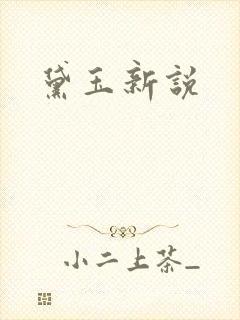 黛玉新説
小二上茶_